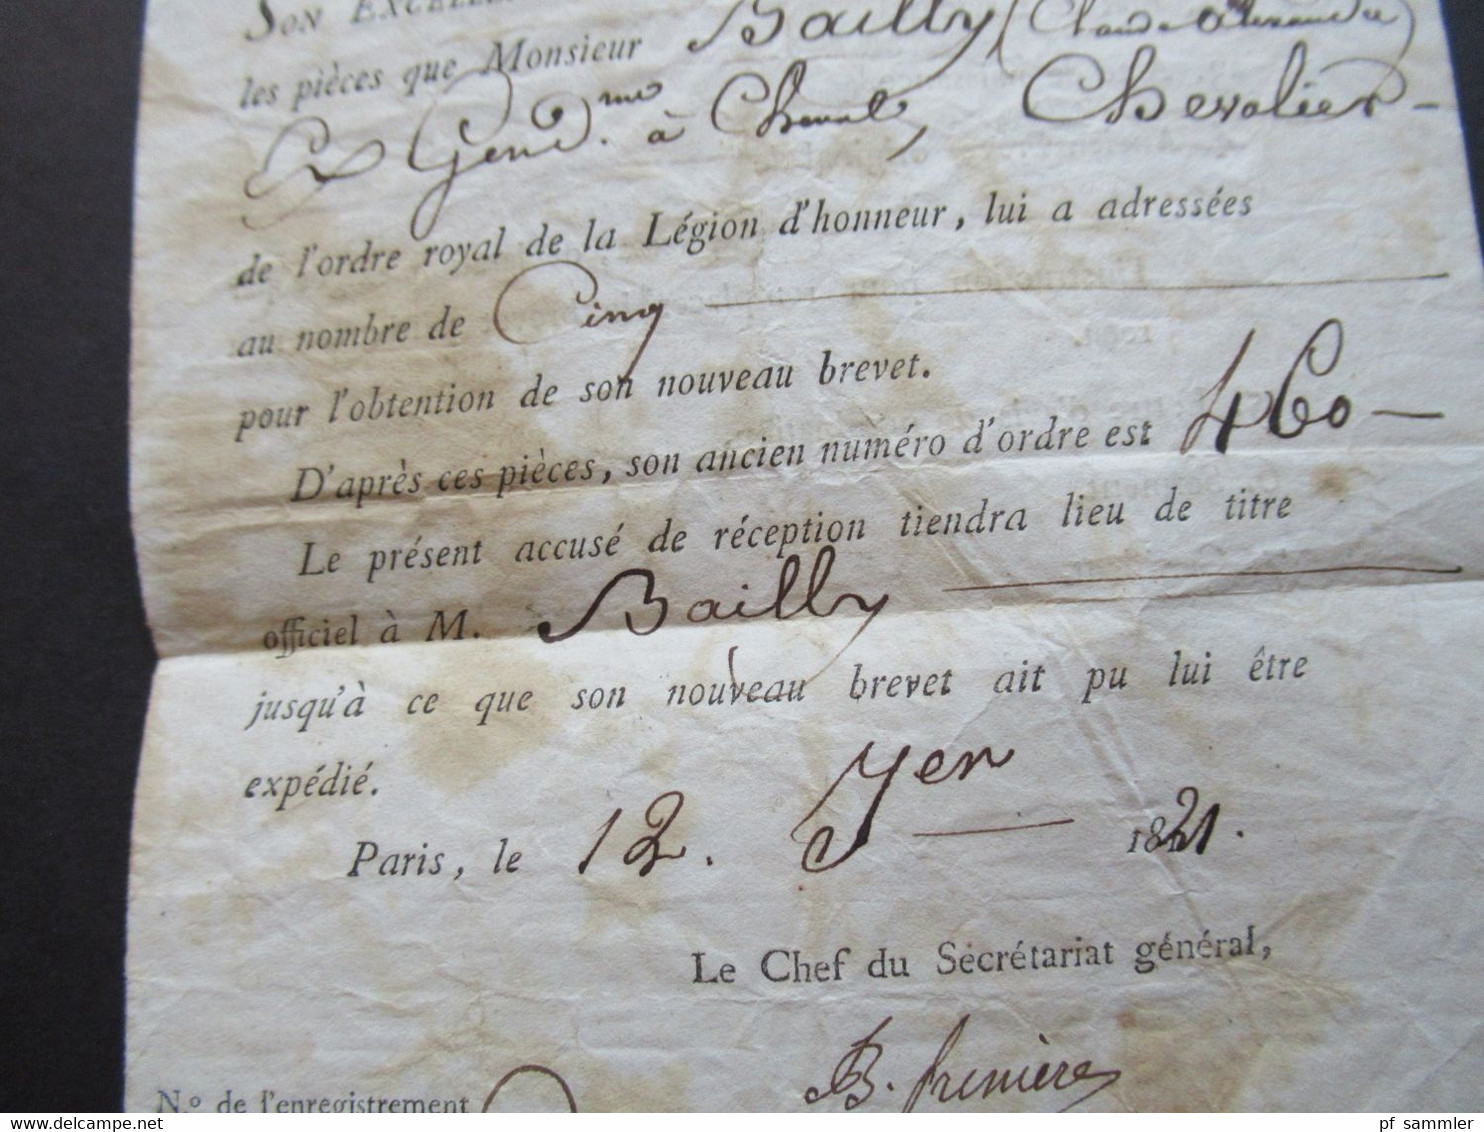 SON EXCELLE
les pièces que Monsieur Bailly (Claude Alexandre)
Ex Gend.me à Cheval, Chevalier
de l'ordre royal de la Légion d'honneur, lui a adressées
au nombre de Cinq
pour l'obtention de son nouveau brevet.
D'après ces pièces, son ancien numéro d'ordre est 460
Le présent accusé de réception tiendra lieu de titre
officiel à M. Bailly
jusqu'à ce que son nouveau brevet ait pu lui être
expédié.
Paris, le 12. Jer 1821.
Le Chef du Secrétariat général,
N.o de l'enregistrement
pf sammler